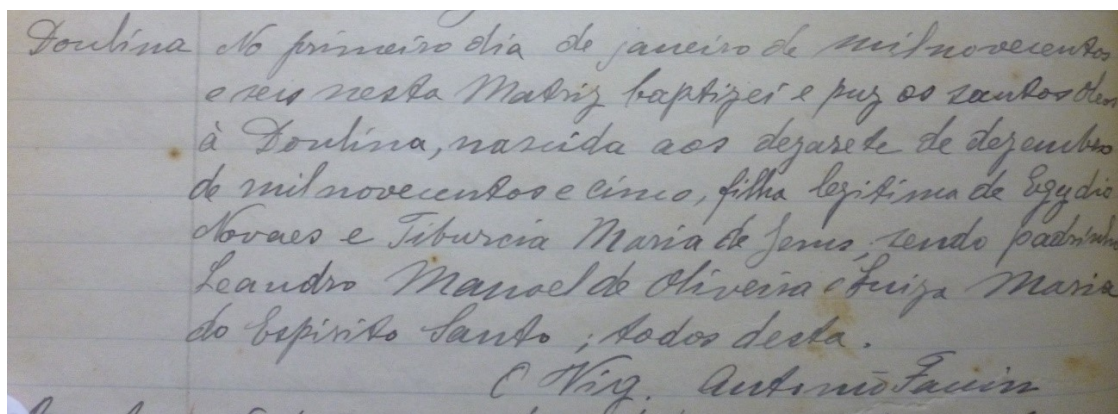 Doulina No primeiro dia de janeiro de mil novecentos
e seis nesta Matriz baptizei e puz os santos oleos
à Doulina, nascida aos dezasete de dezembro
de mil novecentos e cinco, filha legitima de Egydio
Novaes e Tiburcia Maria de Jesus, sendo padrinhos
Leandro Manoel de Oliveira e Luiza Maria
do Espirito Santo ; todos desta.
O Vig. Antonio